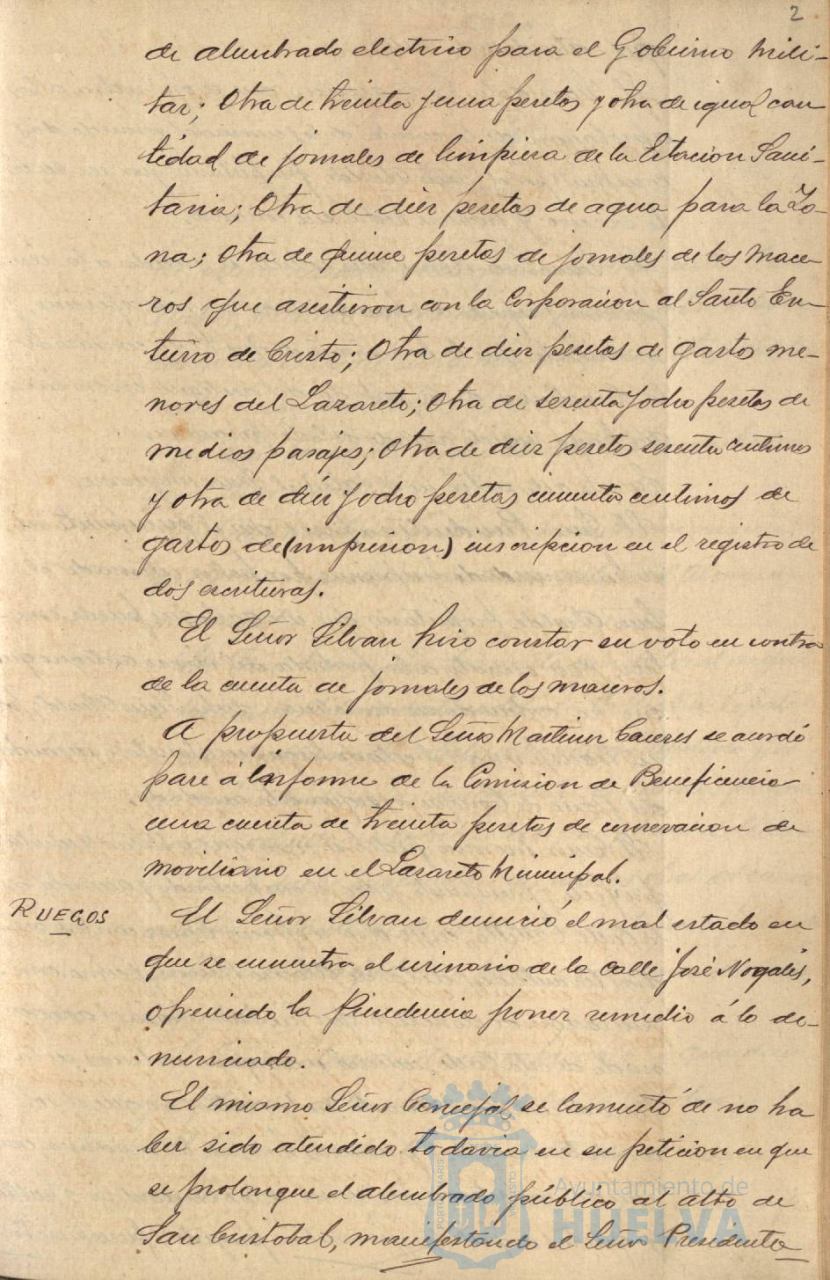 2
de alumbrado electrico para el Gobierno Mili-
tar; Otra de treinta y una pesetas y otra de igual can
tidad de jornales de limpieza de la Estacion Sani-
taria; Otra de diez pesetas de agua para la Zo-
na; Otra de quince pesetas de jornales de los mace
ros que asistieron con la Corporacion al Santo En-
tierro de Cristo; Otra de diez pesetas de gastos me-
nores del Lazareto; Otra de sesenta y ocho pesetas de
medios pasajes; Otra de diez pesetas sesenta centimos
y otra de diez y ocho pesetas cincuenta centimos de
gastos de (impresion) inscripcion en el registro de
dos escrituras.
El Señor Silvan hizo constar su voto en contra
de la cuenta de jornales de los maceros.
A propuesta del Señor Martinez Caceres se acordó
pase á informe de la Comision de Beneficencia
una cuenta de treinta pesetas de conservacion de
moviliario en el Lazareto Municipal.
RUEGOS
El Señor Silvan denunció el mal estado en
que se encuentra el urinario de la calle José Nogales,
ofreciendo la Presidencia poner remedio á lo de-
nunciado.
El mismo Señor Concejal se lamentó de no ha
ber sido atendido todavia en su peticion en que
se prolongue el alumbrado público al alto de
San Cristobal, manifestando el Señor Presidente
Ayuntamiento de
HUELVA